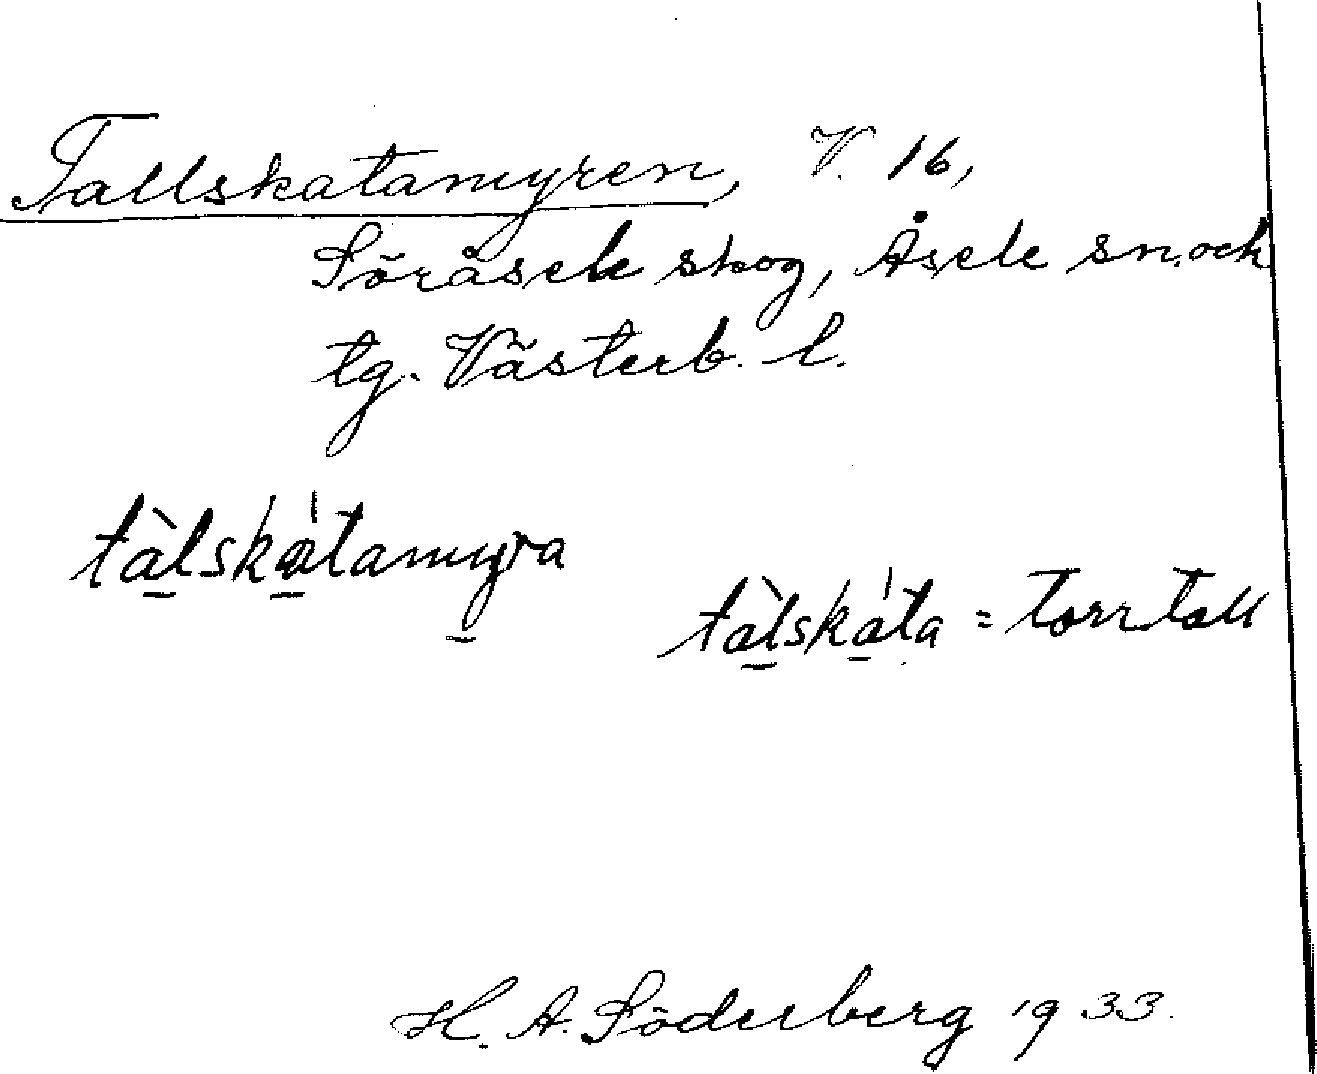 Tallskatamyren, V. 16,
Söråsele skog, Åsele sn. och
tg. Västerb. l.
tàlskátamyra
tàlskáta = torrtall
H. A. Söderberg 1933.